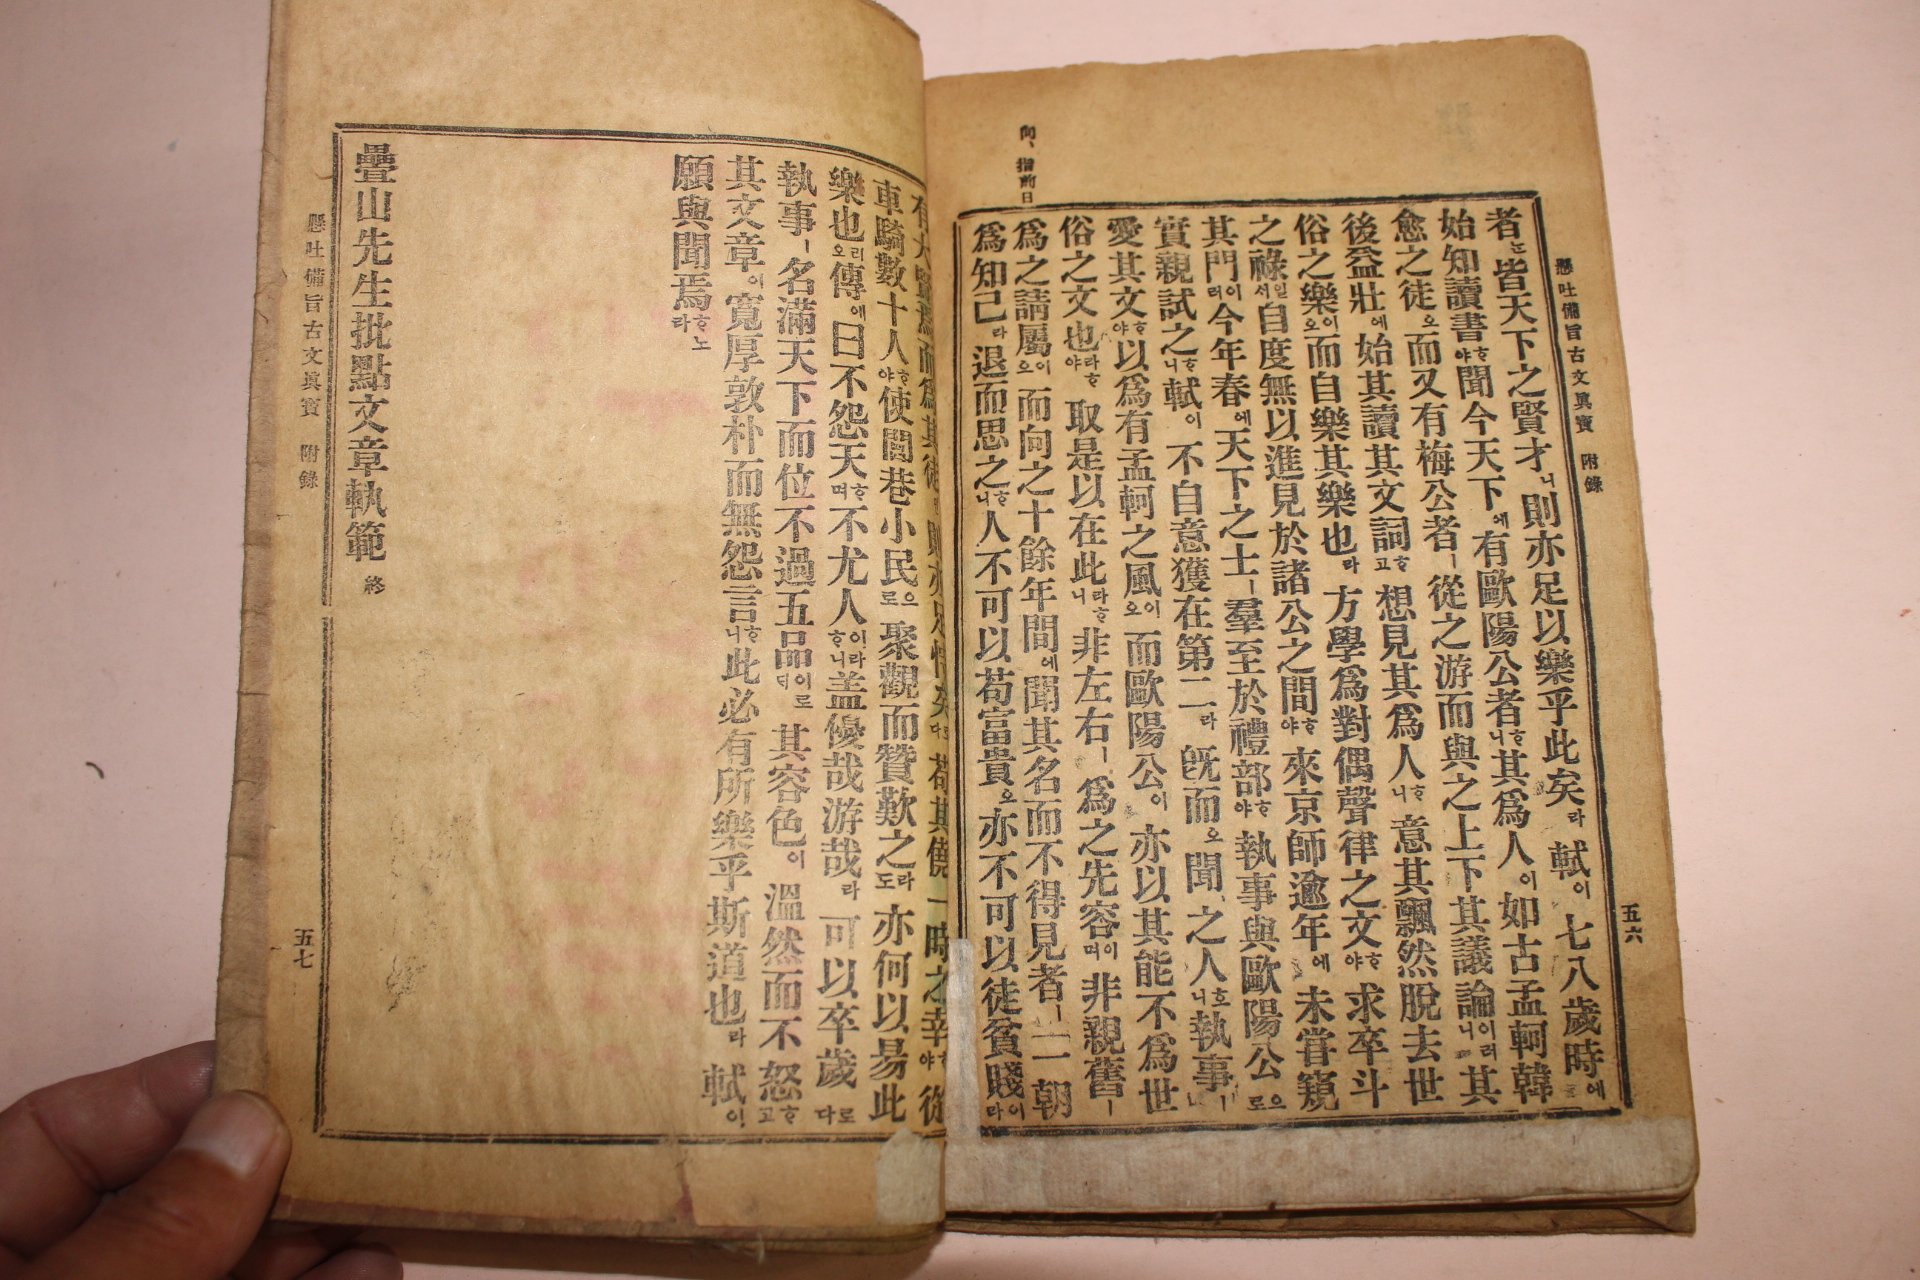 懸吐備旨古文眞寶 附錄
五六
向、指前日
者는皆天下之賢才니則亦足以樂乎此矣라軾이七八歲時에
始知讀書ᄒᆞ야聞今天下에有歐陽公者ᄒᆞ니其爲人이如古孟軻韓
愈之徒오而又有梅公者ㅣ從之游而與之上下其議論이러니其
後益壯에始其讀其文詞ᄒᆞ고想見其爲人ᄒᆞ니意其飄然脫去世
俗之樂이오而自樂其樂也라方學爲對偶聲律之文ᄒᆞ야求卒斗
之祿일서自度無以進見於諸公之間ᄒᆞ야來京師逾年에未嘗窺
其門이러今年春에天下之士ㅣ羣至於禮部ᄒᆞ야執事與歐陽公으로
實親試之ᄒᆞ니軾이不自意獲在第二라旣而오聞之人호니執事ㅣ
愛其文ᄒᆞ야以爲有孟軻之風이오而歐陽公이亦以其能不爲世
俗之文也라ᄒᆞ야取是以在此라ᄒᆞ니非左右ㅣ爲之先容이며非親舊ㅣ
爲之請屬이오而向之十餘年間에聞其名而不得見者ㅣ一朝
爲知己라退而思之ᄒᆞ니人不可以苟富貴오亦不可以徒貧賤이라
有大賢焉而爲其徒 則亦足恃矣로다苟其僥一時之幸ᄒᆞ야從
車騎數十人ᄒᆞ야使閭巷小民으로聚觀而贊歎之라도亦何以易此
樂也리오傳에曰不怨天ᄒᆞ며不尤人이라ᄒᆞ니盖優哉游哉라可以卒歲로다
執事ㅣ名滿天下而位不過五品이로ᄃᆡ其容色이溫然而不怒ᄒᆞ고
其文章이寬厚敦朴而無怨言ᄒᆞ니此必有所樂乎斯道也라軾이
願與聞焉ᄒᆞ노라
疊山先生批點文章軌範 終
懸吐備旨古文眞寶 附錄
五七